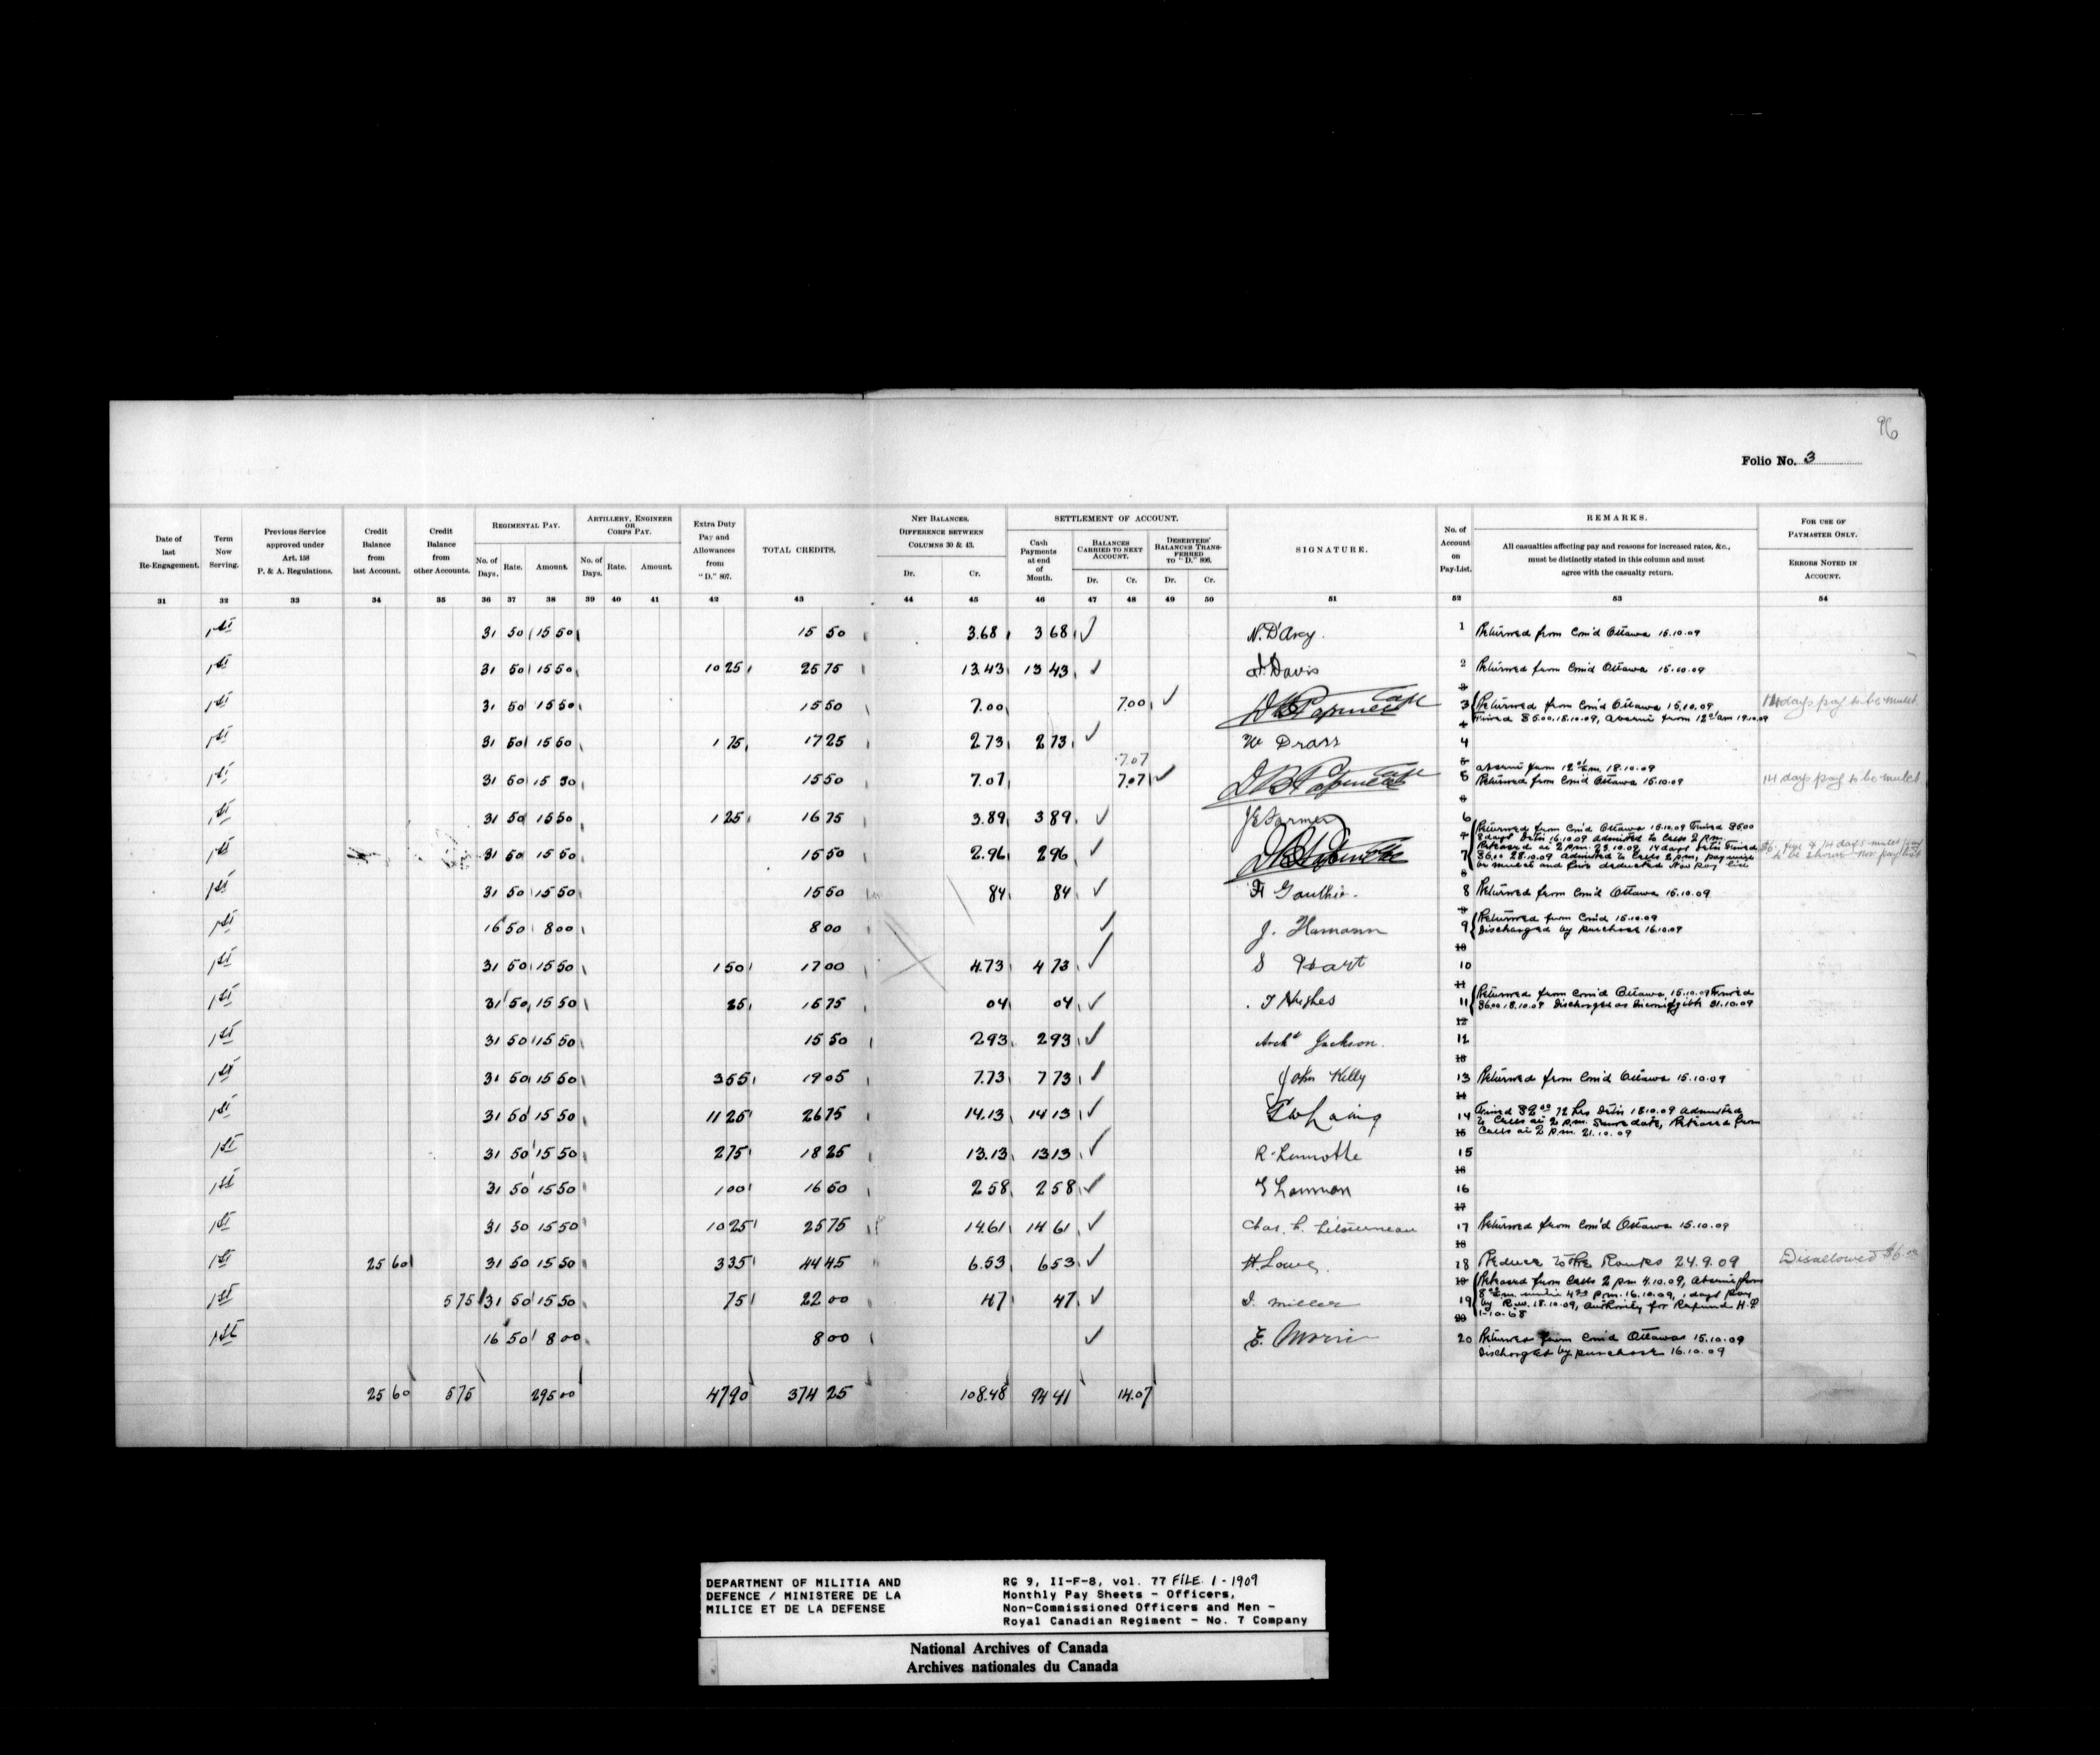 96
Folio No. 3
Date of last Re-Engagement.
Term Now Serving.
Previous Service approved under Art. 158 P. & A. Regulations.
Credit Balance from last Account.
Credit Balance from other Accounts.
REGIMENTAL PAY.
No. of Days. Rate. Amount.
ARTILLERY, ENGINEER OR CORPS PAY.
No. of Days. Rate. Amount.
Extra Duty Pay and Allowances from "D." 807.
TOTAL CREDITS.
NET BALANCES.
DIFFERENCE BETWEEN COLUMNS 30 & 43.
Dr. Cr.
SETTLEMENT OF ACCOUNT.
Cash Payments at end of Month.
BALANCES CARRIED TO NEXT ACCOUNT.
Dr. Cr.
DESERTERS' BALANCES TRANSFERRED TO "D." 806.
Dr. Cr.
SIGNATURE.
No. of Account on Pay-List.
REMARKS.
All casualties affecting pay and reasons for increased rates, &c., must be distinctly stated in this column and must agree with the casualty return.
FOR USE OF PAYMASTER ONLY.
ERRORS NOTED IN ACCOUNT.
31 32 33 34 35 36 37 38 39 40 41 42 43 44 45 46 47 48 49 50 51 52 53 54
1st 31 50 15 50 15 50 3.68 3 68 N. D'Arcy. 1 Returned from Com'd Ottawa 15.10.09
1st 31 50 15 50 10 25 25 75 13.43 13 43 Davis 2 Returned from Com'd Ottawa 15.10.09
1st 31 50 15 50 15 50 7.00 7.00 3 Returned from Com'd Ottawa 15.10.09 14 days pay to be mulct
Fined $5.00, 15.10.09, absent from 12 am 19.10.09
1st 31 50 15 50 1 75 17 25 2 73 2 73 W Drass 4
7.07
1st 31 50 15 50 15 50 7.07 7.07 5 absent from 12 18.10.09
Returned from Com'd Ottawa 15.10.09 14 days pay to be mulct
1st 31 50 15 50 1 25 16 75 3.89 3 89 J E Farmer 6
1st 31 50 15 50 15 50 2.96 2 96 7 Returned from Com'd Ottawa 15.10.09 Fined $5.00
8 days Det'n 16.10.09 admitted to Cells 2 p.m.
Released at 2 p.m. 23.10.09, 14 days Det'n Fined
$6.00 28.10.09 admitted to Cells 2 p.m, pay
be mulct and fine deducted Nov pay list
1st 31 50 15 50 15 50 84 84 Gauthier. 8 Returned from Com'd Ottawa 15.10.09
1st 16 50 8 00 8 00 J. Hamann 9 Returned from Com'd 15.10.09
Discharged by purchase 16.10.09
1st 31 50 15 50 1 50 17 00 4.73 4 73 S Hart 10
1st 31 50 15 50 25 15 75 04 04 T Hughes 11 Returned from Com'd Ottawa, 15.10.09 Fined
$6.00 18.10.09 Discharged as 31.10.09
1st 31 50 15 50 15 50 2 93 2 93 Arch'd Jackson. 12
1st 31 50 15 50 3 55 19 05 7.73 7 73 John Kelly 13 Returned from Com'd Ottawa 15.10.09
1st 31 50 15 50 11 25 26 75 14.13 14 13 Laing 14 Fined $2.00 72 hrs Det'n 18.10.09 admitted
to Cells at 2 p.m. same date, Released from
Cells at 2 p.m. 21.10.09
1st 31 50 15 50 2 75 18 25 13.13 13 13 R. Lamothe 15
1st 31 50 15 50 1 00 16 50 2 58 2 58 16
1st 31 50 15 50 10 25 25 75 14.61 14 61 Chas. Letourneau 17 Returned from Com'd Ottawa 15.10.09
1st 25 60 31 50 15 50 3 35 44 45 6.53 6 53 H. Lowe. 18 Reduced to the Ranks 24.9.09 Disallowed $6.00
1st 5 75 31 50 15 50 75 22 00 47 47 Miller 19 Released from Cells 2 pm 4.10.09, absent from
until p.m. 16.10.09, 1 days pay
by R.W. 18.10.09, authority for Refund H.Q
1-10-68
1st 16 50 8 00 8 00 E. Morris 20 Returned from Com'd Ottawa 15.10.09
Discharged by purchase 16.10.09
25 60 5 75 295 00 47 90 374 25 108.48 94 41 14.07
DEPARTMENT OF MILITIA AND DEFENCE / MINISTERE DE LA MILICE ET DE LA DEFENSE
RG 9, II-F-8, vol. 77 FILE. 1 - 1909
Monthly Pay Sheets - Officers,
Non-Commissioned Officers and Men -
Royal Canadian Regiment - No. 7 Company
National Archives of Canada
Archives nationales du Canada